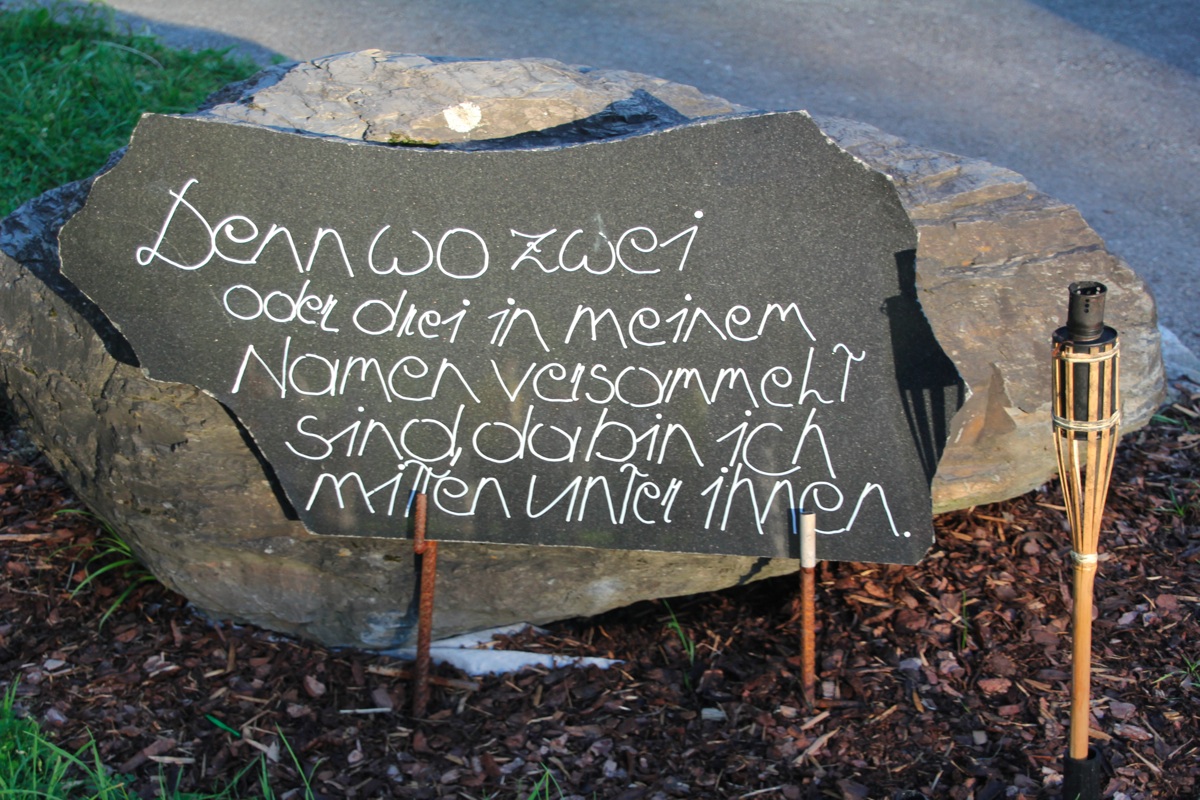 Denn wo zwei
oder drei in meinem
Namen versammelt
sind, da bin ich
mitten unter ihnen.